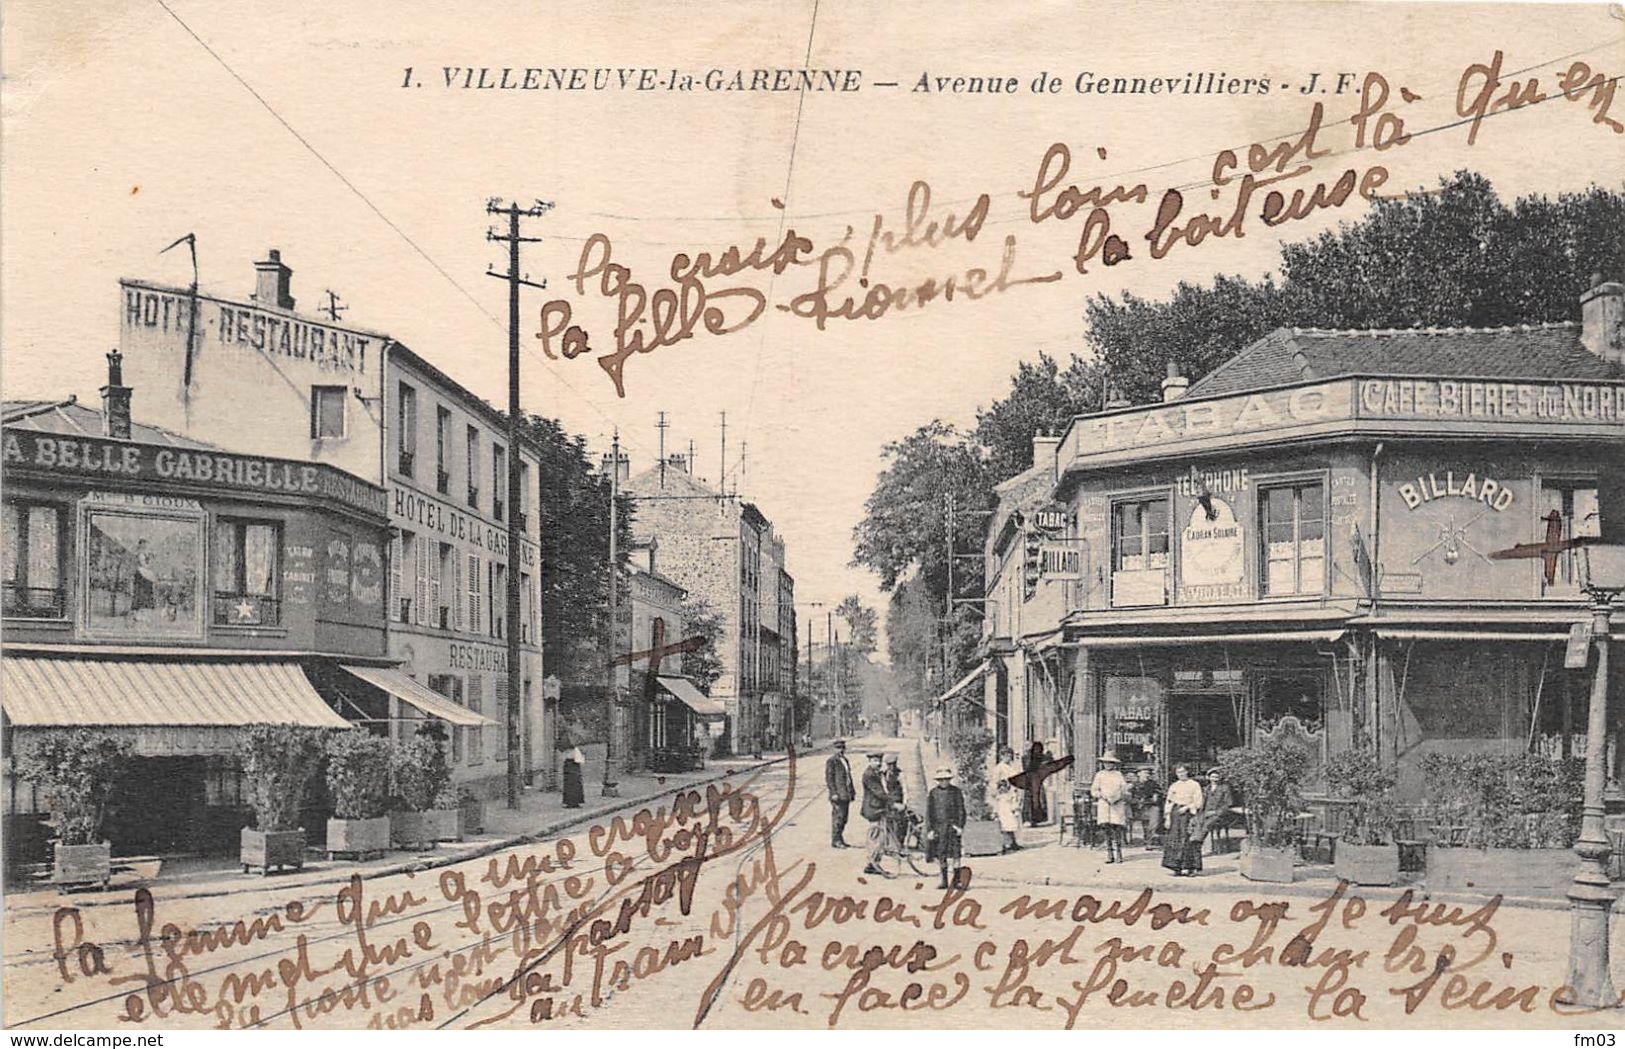 1. VILLENEUVE-la-GARENNE — Avenue de Gennevilliers - J. F.
la croix plus loin c'est là qu'en
la fille Lionnet la boiteuse
HOTEL-RESTAURANT
A BELLE GABRIELLE RESTAURANT
HOTEL DE LA GARENNE
RESTAURANT
SALON
CABINET
TABAC
CAFÉ BIERES du NORD
TÉLÉPHONE
BILLARD
TABAC
BILLARD
CADRAN SOLAIRE
TABAC
TELEPHONE
la femme qui a une croix
elle met une lettre a boite
la poste n'est donc
pas loin
la passag
au train way
voici la maison ou je suis
la croix c'est ma chambre
en face la fenetre la Seine
delcampe.net
fm03